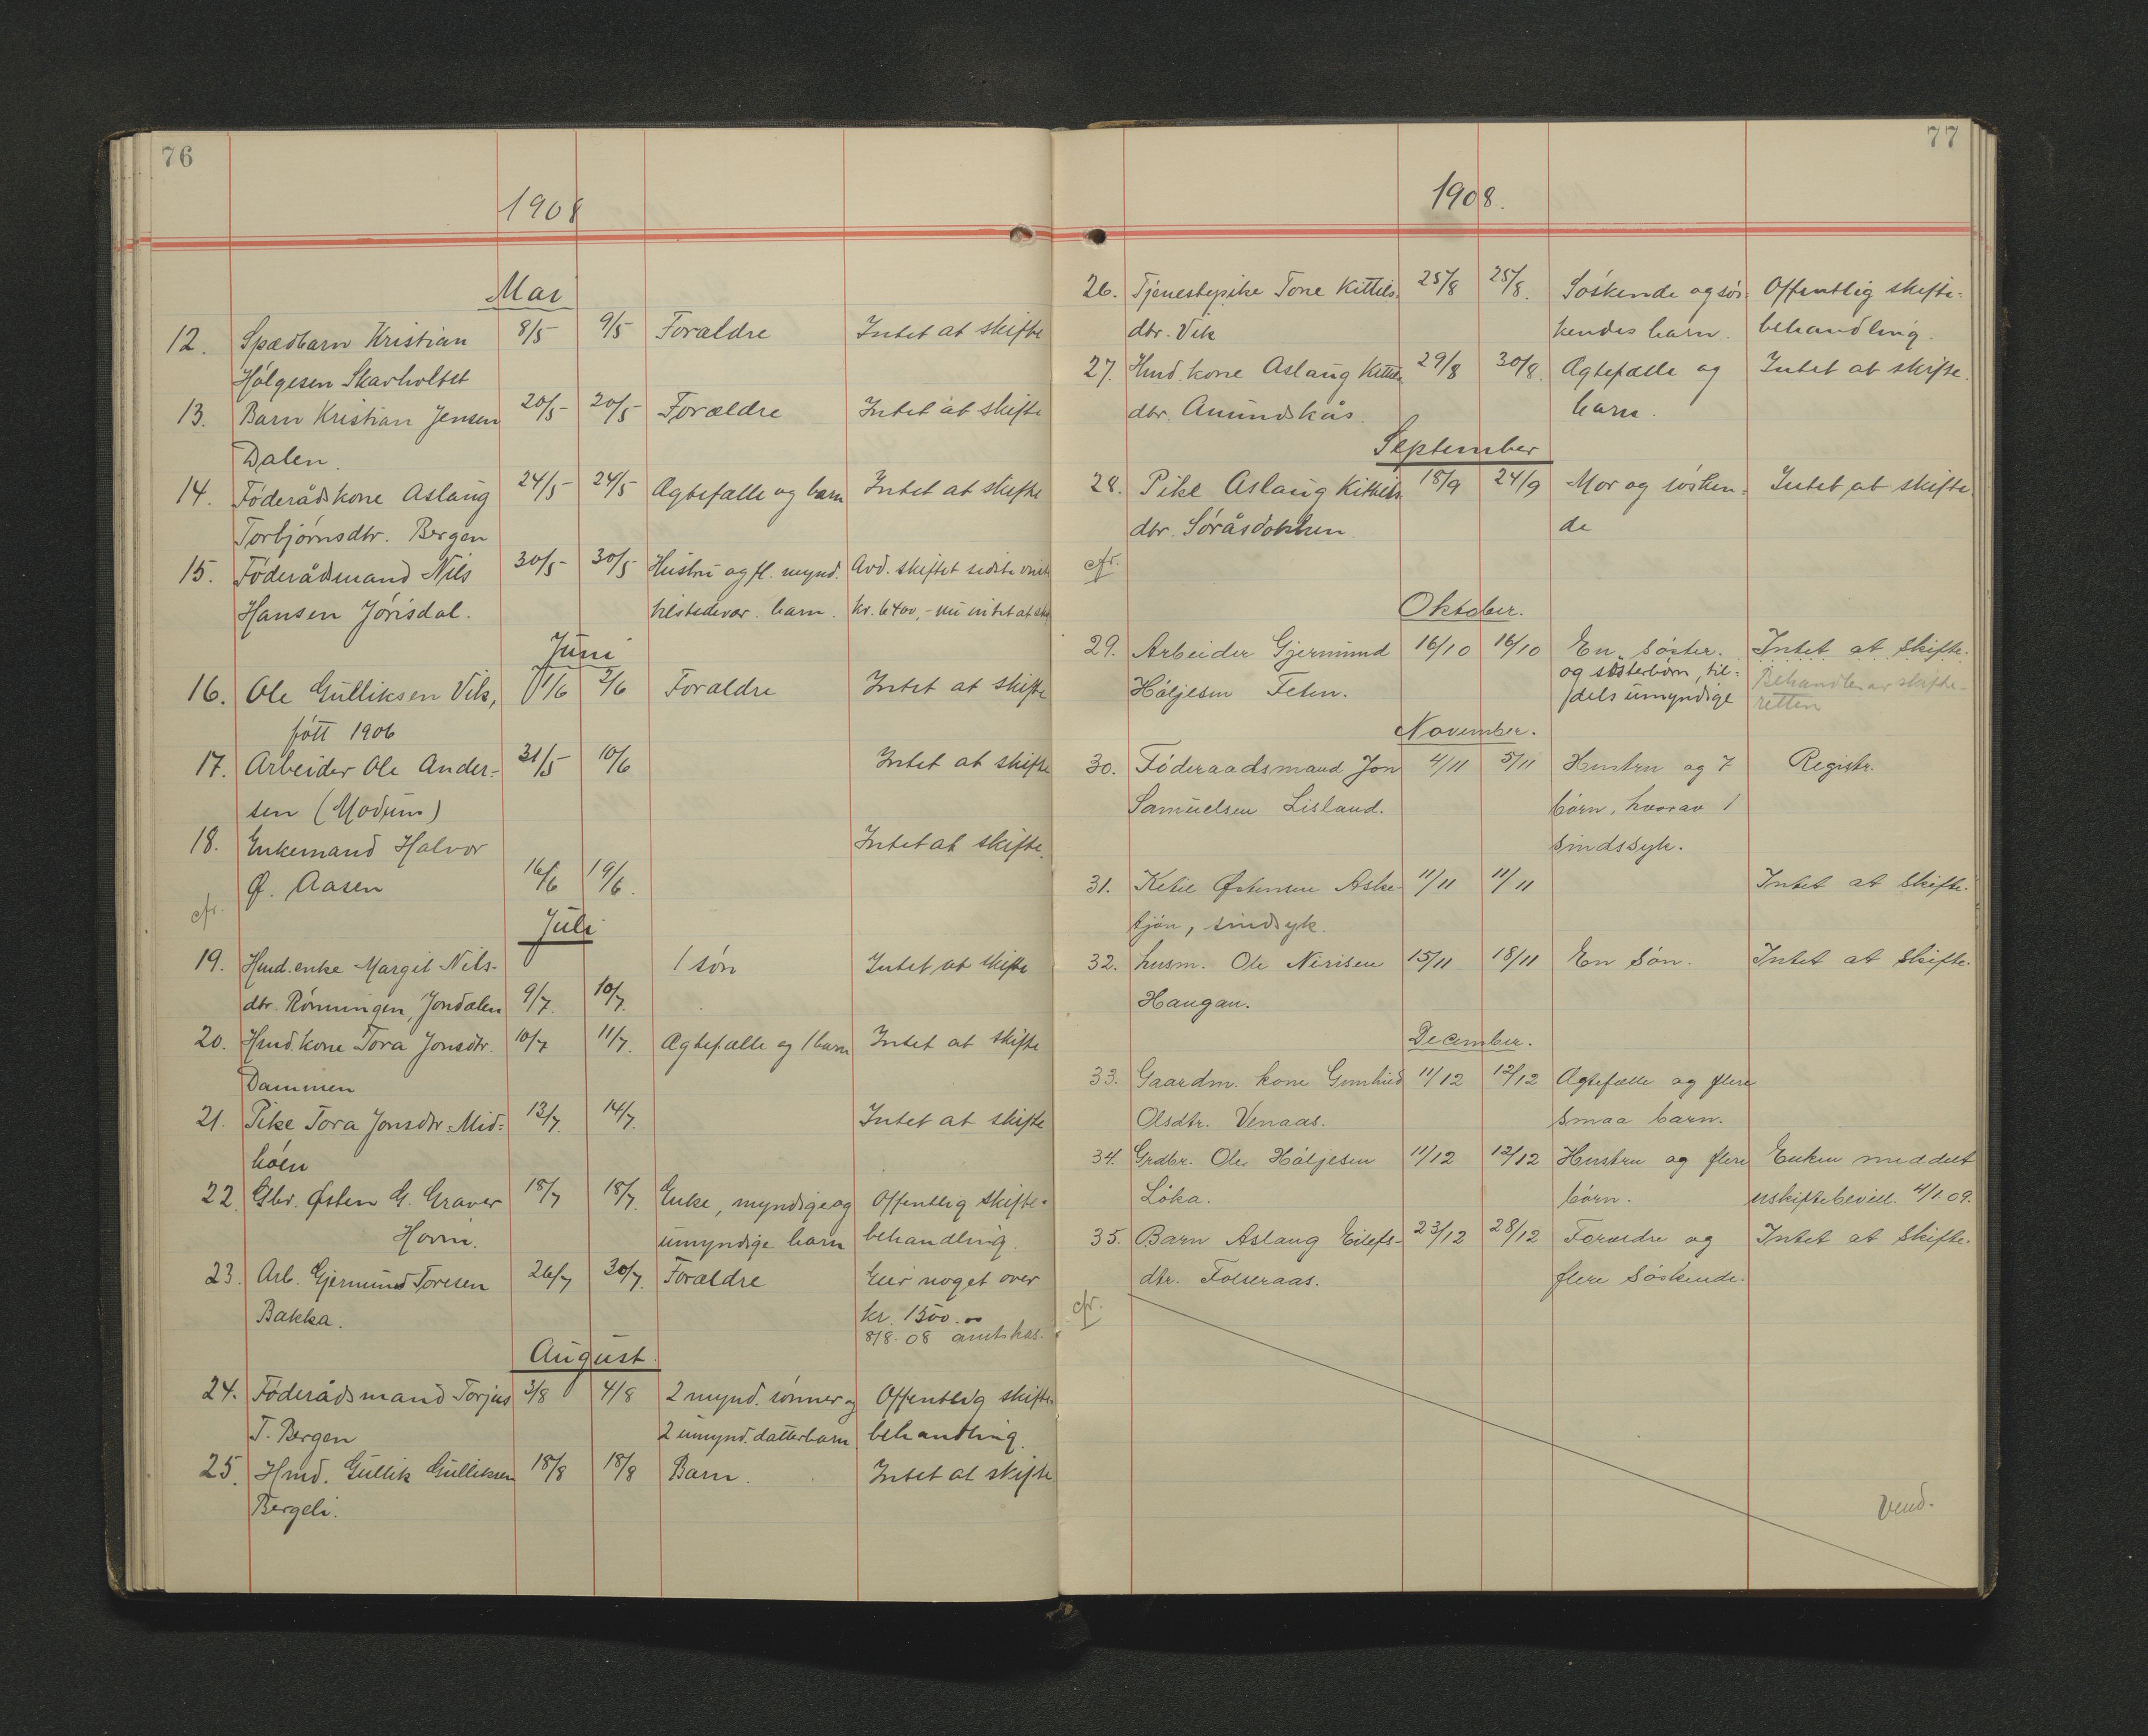 76
1908
Mai
12. Spædbarn Kristian 8/5 9/5 Forældre Intet at skifte
Hølgesen Skavholtet
13. Barn Kristian Jensen 20/5 20/5 Forældre Intet at skifte
Dalen.
14. Føderådskone Aslaug 24/5 24/5 Ægtefælle og barn Intet at skifte
Torbjørnsdtr. Bergen
15. Føderådsmand Nils 30/5 30/5 Hustru og fl. mynd. Avd. skiftet sidste
Hansen Jørisdal. tilstedevær. barn. kr. 6400,- nu intet at
Juni
16. Ole Gulliksen Vik, 1/6 2/6 Forældre Intet at skifte
fött 1906
17. Arbeider Ole Ander- 31/5 10/6 Intet at skifte
sen (Modum)
18. Enkemand Halvor Intet at skifte.
Ø. Aasen 16/6 19/6.
cfr.
Juli
19. Hmd. enke Margit Nils- 1 søn Intet at skifte
dtr. Rønningen, Jondalen 9/7. 10/7.
20. Hmd. kone Tora Jonsdtr. 10/7 11/7. Ægtefælle og 1 barn Intet at skifte
Dammen
21. Pike Tora Jonsdtr. Mid- 13/7. 14/7. Intet at skifte
høen
22. Gbr. Østen G. Graver 18/7 18/7. Enke, myndige og Offentlig skifte-
Hovin. umyndige barn behandling.
23. Arb. Gjermund Toresen 26/7 30/7. Forældre Eier noget over
Bakka. kr. 1500.00
8/8. 08 amtskas.
August
24. Føderådsmand Torjus 3/8 4/8 2 mynd. sønner og Offentlig skifte-
T. Bergen 2 umynd. datterbarn behandling.
25. Hmd. Gullik Gulliksen 18/8 18/8 Barn. Intet at skifte
Bergeli.
77
1908.
26. Tjenestepike Tone Kittils- 25/8 25/8. Søskende og søs- Offentlig skifte-
dtr. Vik kendes barn. behandling.
27. Hmd. kone Aslaug Kittils 29/8 30/8. Ægtefælle og Intet at skifte.
dtr. Amundskås. barn.
September
28. Pike Aslaug Kittils 18/9 24/9 Mor og søsken- Intet at skifte
dtr. Søråsdokken. de
cfr.
Oktober.
29. Arbeider Gjermund 16/10 16/10 En søster. Intet at skifte.
og søsterbörn, til- Behandles av skifte-
Høljesen Feten. dels umyndige retten
November.
30. Føderaadsmand Jon 4/11 5/11 Hustru og 7 Registr.
Samuelsen Lisland. børn, hvorav 1
sindssyk.
31. Ketil Østensen Aske- 11/11 11/11 Intet at skifte.
tjøn, sindsyk.
32. husm. Ole Nirisen 15/11 18/11 En søn. Intet at skifte.
Haugan.
December.
33. Gaardm. kone Gunhild 11/12 12/12 Ægtefælle og flere
Olsdtr. Venaas. smaa barn.
34. Grdbr. Ole Høljesen 11/12 12/12 Hustru og flere Enken meddelt
Løka. børn. uskiftebevill. 4/1.09.
35. Barn Aslaug Eilefs- 23/12 28/12 Forældre og Intet at skifte.
dtr. Folseraas. flere søskende.
cfr.
Vend.